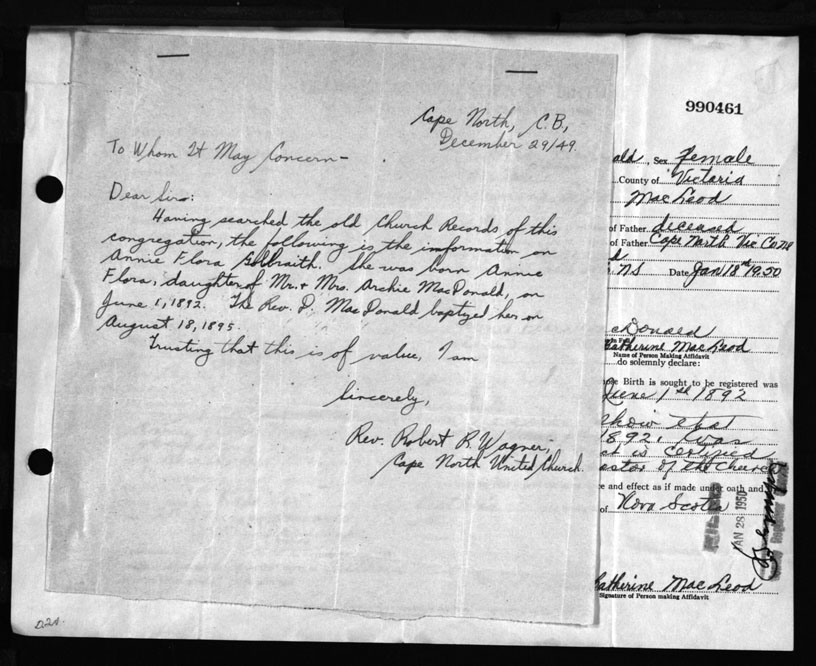 990461
Cape North, C.B,
December 29/49.
To Whom It May Concern-
Dear Sirs:
Having searched the old Church Records of this
congregation, the following is the information on
Annie Flora Galbraith. She was born Annie
Flora, daughter of Mr. + Mrs. Archie MacDonald, on
June 1, 1892. The Rev. D. MacDonald baptized her on
August 18, 1895.
Trusting that this is of value, I am
Sincerely,
Rev. Robert R. Wagner,
Cape North United Church.
ald, Sex Female
County of Victoria
MacLeod
of Father deceased
of Father Cape North Vic Co NS
NS Date Jan 18th 1950
cDonald
Catherine MacLeod
Name of Person Making Affidavit
do solemnly declare:
ose Birth is sought to be registered was
June 1st 1892
show that
1892. was
is certified
astor of the Church
ce and effect as if made under oath and
of Nova Scotia
JAN 28 1950
Catherine MacLeod
Signature of Person making Affidavit
D.2A.